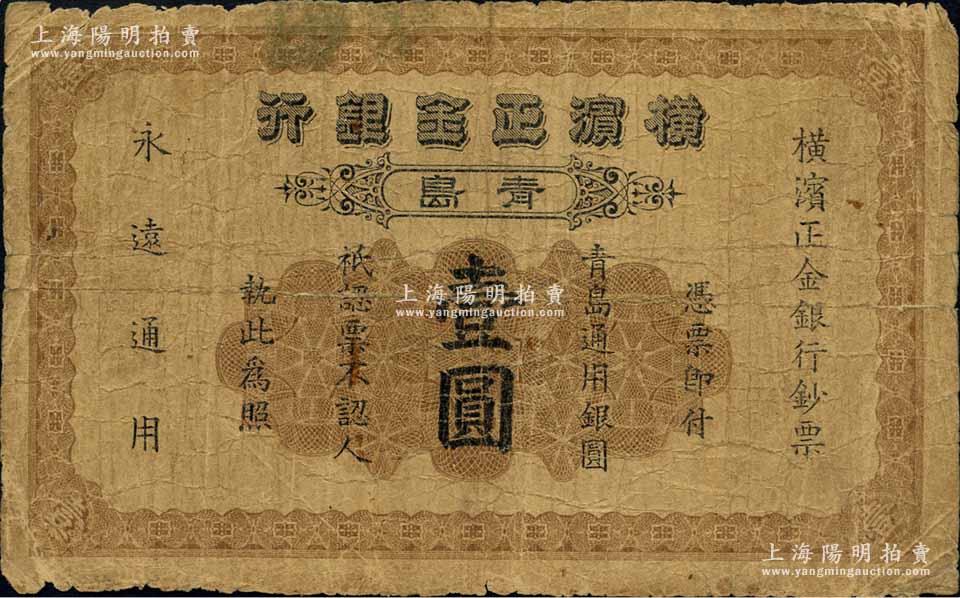 上海陽明拍賣
www.yangmingauction.com
上海陽明拍賣
www.yangmingauction.com
橫濱正金銀行
青島
橫濱正金銀行鈔票
憑票即付
青島通用銀圓
壹圓
祇認票不認人
執此爲照
永遠通用
上海陽明拍賣
www.yangmingauction.com
上海陽明拍賣
www.yangmingauction.com